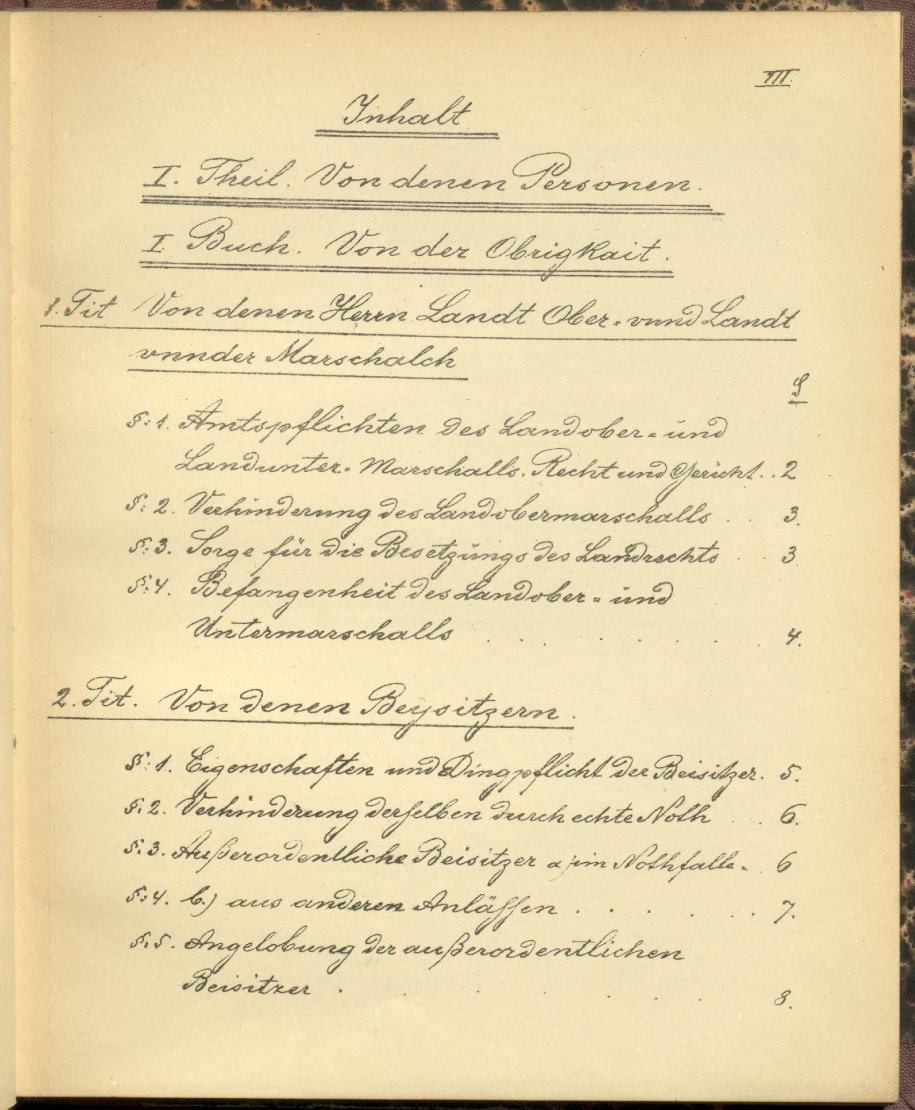 III.
Inhalt
I. Theil. Von denen Personen.
I Buch. Von der Obrigkait.
1. Tit Von denen Herrn Landt Ober- vnnd Landt
vnnder Marschalch
S
§: 1. Amtspflichten des Landober- und
Landunter- Marschalls. Recht und Gericht . . 2
§: 2. Verhinderung des Landobermarschalls . . 3.
§: 3. Sorge für die Besetzungs des Landrechts . . 3
§: 4. Befangenheit des Landober- und
Untermarschalls . . . . . . 4.
2. Tit. Von denen Beysitzern.
§: 1. Eigenschaften und Dingpflicht der Beisitzer. 5.
§: 2. Verhinderung derselben durch echte Noth . . . 6.
§: 3. Außerordentliche Beisitzer a) im Nothfalle. . 6
§: 4. b.) aus anderen Anlässen . . . . . . 7.
§: 5. Angelobung der außerordentlichen
Beisitzer . . . . . . . 8.